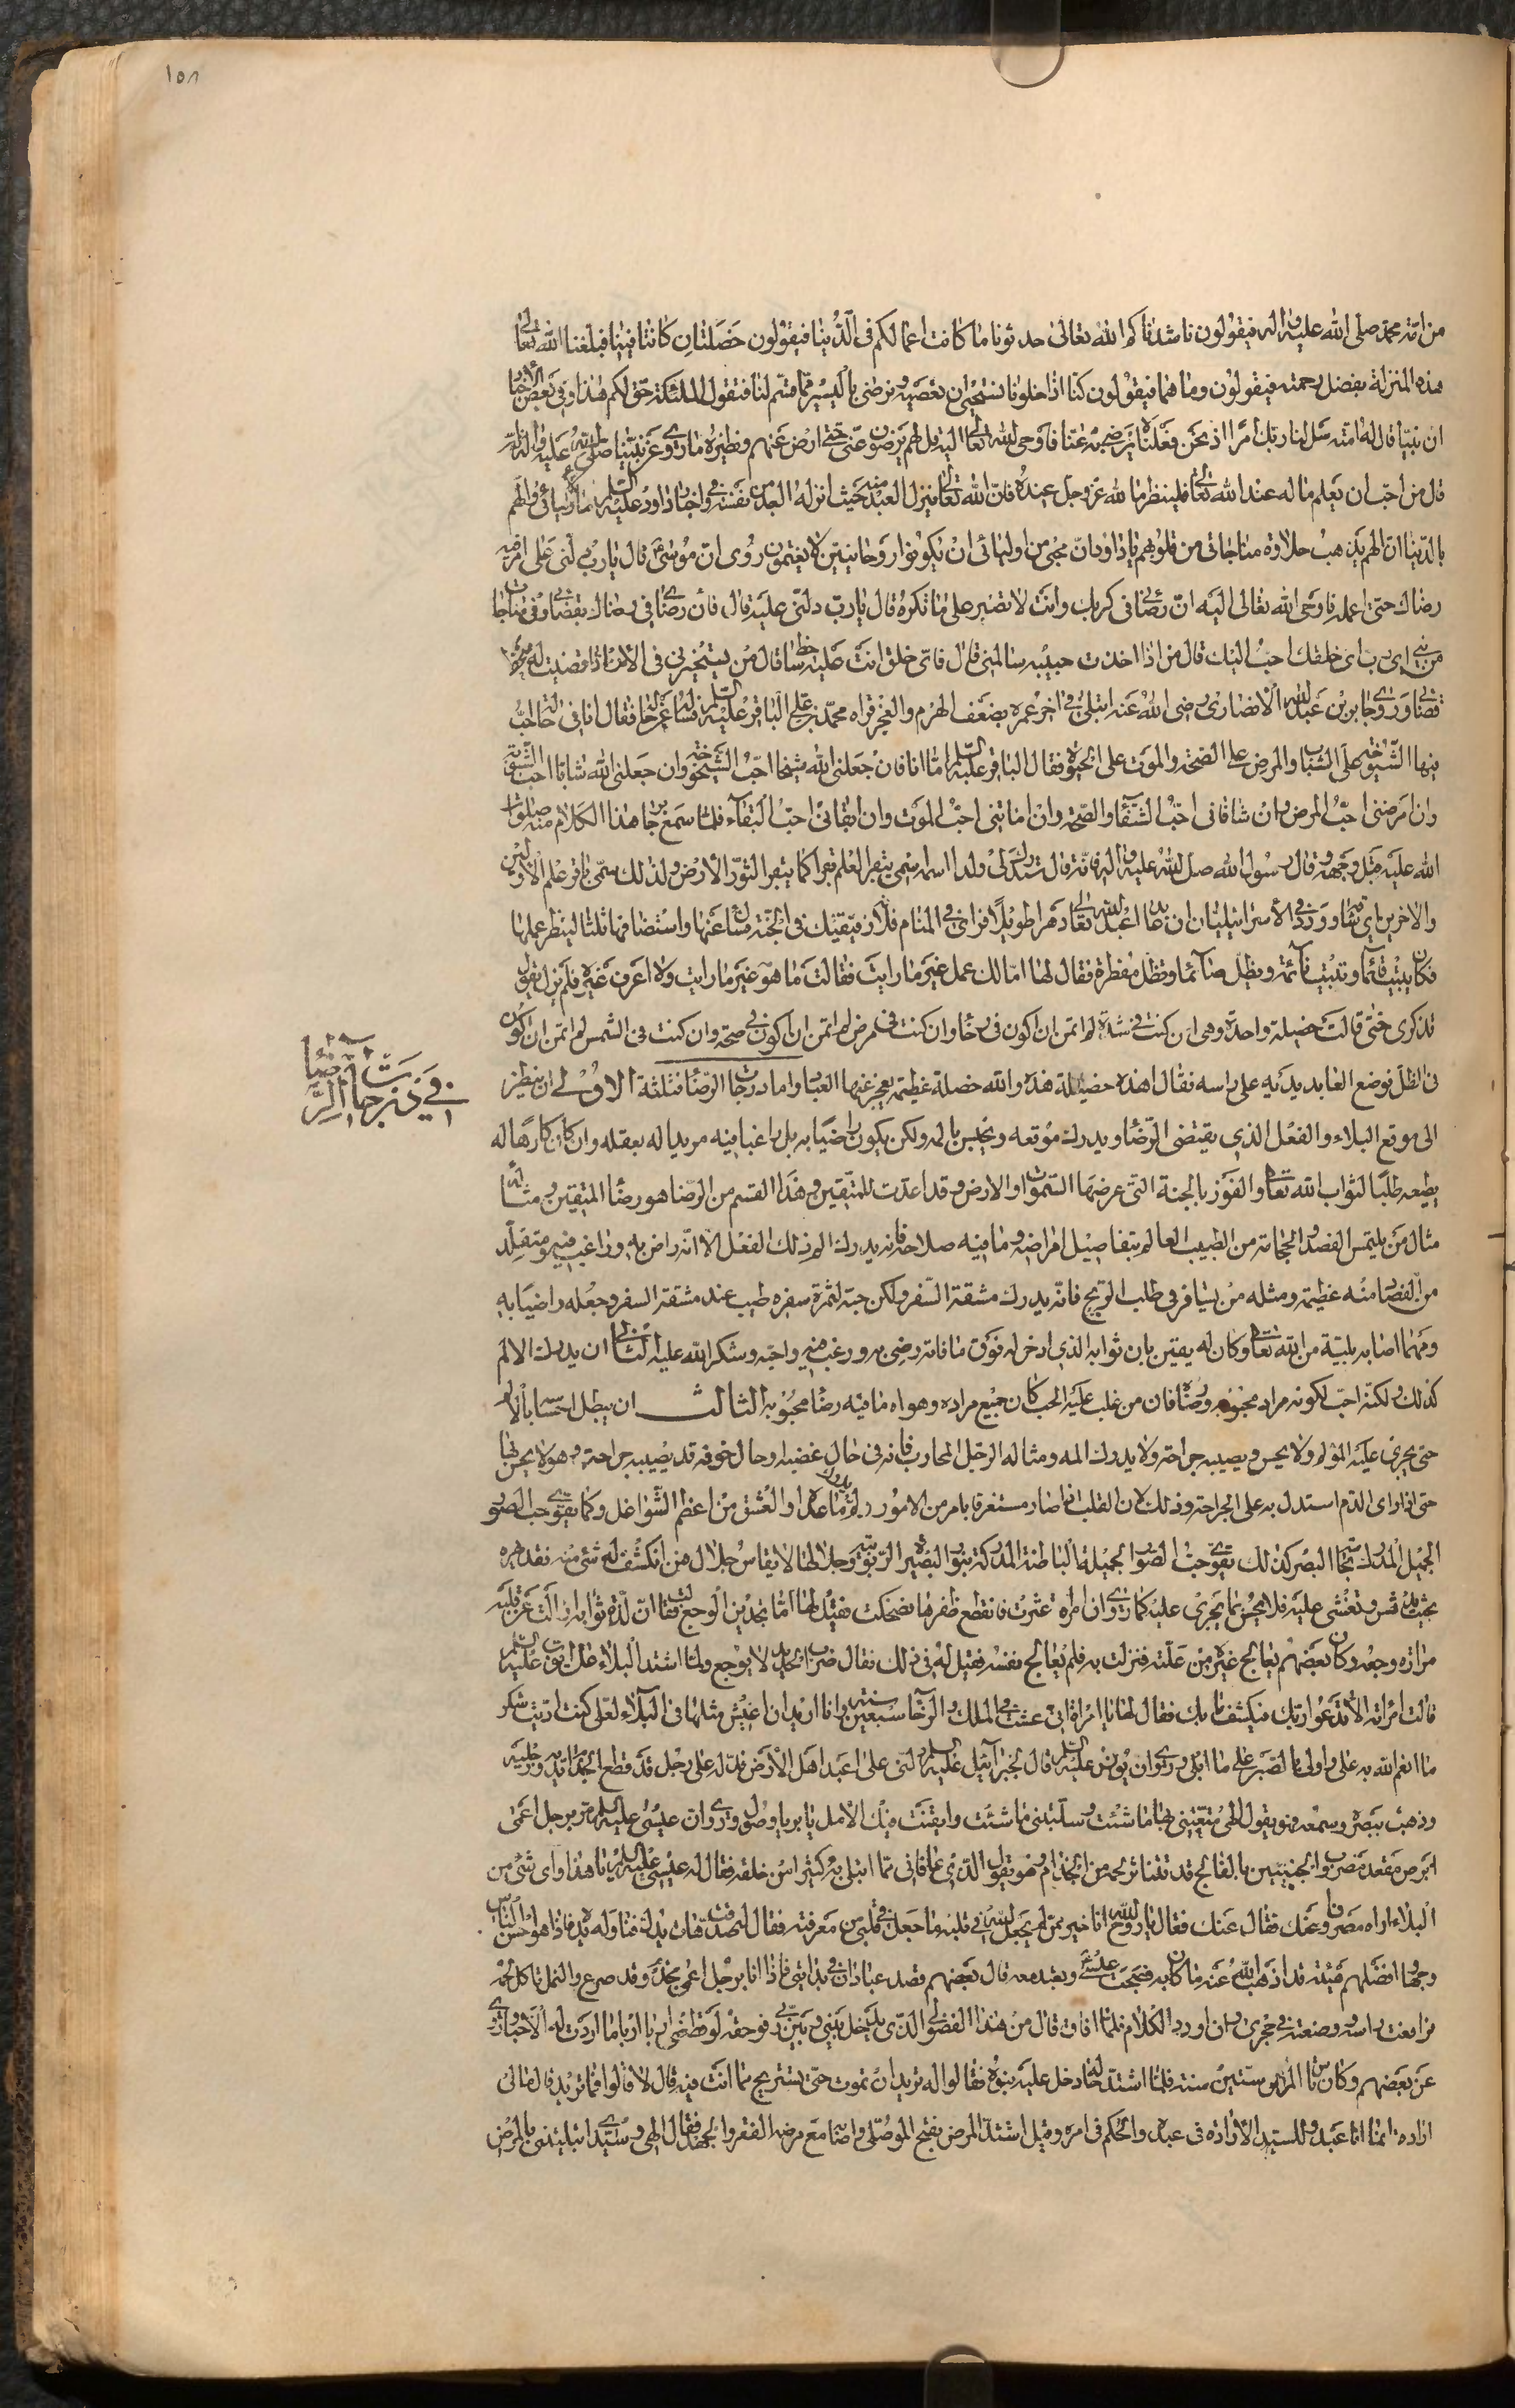 ١٥٨
من امّة محمّد صلى الله عليه واله فيقولون ناشدناكم الله تعالى حدثونا ما كانت اعمالكم فى الدّنيا فيقولون خصلتان كانتا فينا فبلغنا الله تعالى
هذه المنزلة بفضل رحمته فيقولون وما هما فيقولون كنّا اذا خلونا نستحيى ان نعصيه ونرضى باليسير ممّا قسّم لنا فتقول الملئكة حقّ لكم هذا وفى بعض الاخبار
ان نبيّا قال له امّته سل لنا ربك امرًا اذ نحن فعلناه يرضى به عنّا فاوحى الله تعالى اليه قل لهم يرضون عنّى حتى ارض عنهم ونظيره ما روى عن نبيّنا صلى الله عليه واله انّه
قال من احبّ ان يعلم ما له عند الله تعالى فلينظر ما لله عزّ وجل عنده فانّ الله تعالى ينزل العبد منه حيث انزله العبد من نفسه وفى اخبار داود عليه السلم ما لاوليائى والهم
بالدّنيا ان الهم يذهب حلاوة مناجاتى من قلوبهم يا داود انّ محبّى من اوليائى ان يكونوا روحانيين لا يغتمون روى انّ موسى قال يا رب دلّنى على امر فيه
رضاك حتى اعمله فاوحى الله تعالى اليه انّ رضائى فى كرهك وانت لا تصبر على ما تكره قال يا ربّ دلنى عليه قال فان رضائى فى رضاك بقضائى وفى مناجات
موسى اى رب اى خلقك احبّ اليك قال من اذا اخذت حبيبه سالمنى قال فاى خلق انت عليه ساخط قال من يستخيرنى فى الامر فاذا قضيت له سخط
قضائى وروى جابر بن عبد الله الانصارى رضى الله عنه ابتلى فى اخر عمره بضعف الهرم والعجز فراه محمّد بن على الباقر عليه السلم فساله عن حاله فقال انا فى حالة احبّ
فيها الشيخوخة على الشباب والمرض على الصّحة والموت على الحيوة فقال الباقر عليه السلم امّا انا فان جعلنى الله شيخا احبّ الشيخوخة وان جعلنى الله شابّا احبّ الشيبوبة
وان امرضنى احبّ المرض وان شافانى احبّ الشفاء والصّحة وان اماتنى احبّ الموت وان ابقانى احبّ البقاء فلما سمع جابر هذا الكلام منه صلوات
الله عليه قبّل وجهه وقال رسول الله صلى الله عليه واله فانّه قال ستدرك لى ولدا اسمه اسمى يبقر العلم بقرا كما يبقر الثّور الارض ولذلك سمّى باقر علم الاوّلين
والاخرين اى شقّا وورد فى الاسرائيليات ان عابدا عبد الله تعالى دهرا طويلًا فراى فى المنام فلانة رفيقتك فى الجنّة فسال عنها واستضافها ثلثا لينظر عملها
فكان يبيت قائما وتبيت نائمة ويظل صائما وتظل مفطرة فقال لها امّا لك عمل غير ما رايت فقالت ما هو غير ما رايت ولا اعرف غيره فلم يزل يقول
تذكرى حتى قالت خصيلة واحدة وهى ان كنت فى شدّة لم اتمن ان اكون فى رخاء وان كنت فى مرض لم اتمن ان اكون فى صحة وان كنت فى الشمس لم اتمن ان اكون
فى الظّل فوضع العابد يديه على راسه فقال اهذه خصيلة هذه والله خصلة عظيمة يعجز عنها العباد واما درجات الرّضا فثلثة الاولى ان ينظر
فى درجات الرّضا
الى موقع البلاء والفعل الذى يقتضى الرّضا ويدرك موقعه ويحس بالمه ولكن يكون راضيا به بل راغبا فيه مريدا له بعقله وان كان كارهًا له
بطبعه طلبًا لثواب الله تعالى والفوز بالجنة التى عرضها السّموات والارض وقد اعدّت للمتّقين وهذا القسم من الرّضا هو رضا المتقين ومثاله
مثال من يلتمس الفصد والحجامة من الطبيب العالم بتفاصيل امراضه وما فيه صلاحه فانه يدرك الم ذلك الفعل الّا انّه راض به وراغب فيه ومتقلّد
من الفصاد منه عظيمة ومثله من يسافر فى طلب الربح فانّه يدرك مشقة السّفر ولكن حبّه لثمرة سفره طيب عنده مشقة السفر وجعله راضيا به
ومهما اصابه بليّة من الله تعالى وكان له يقين بان ثوابه الذى ادخر له فوق ما فاته رضى به ورغب فيه واحبّه وشكر الله عليه الثانى ان يدرك الالم
كذلك ولكنّه احبّ لكونه مراد محبوبه ورضاه فان من غلب عليه الحب كان جميع مراده وهواه ما فيه رضا محبوبه الثالث ان يبطل احساسه بالالم
حتى يجرى عليه المؤلم ولا يحس ويصيبه جراحة ولا يدرك المه ومثاله الرّجل المحارب فانه فى حال غضبه او حال خوفه قد يصيبه جراحة وهو لا يحس بها
حتى اذا راى الدّم استدل به على الجراحة وذلك لان القلب اذا صار مستغرقا بامر من الامور لم يدرك ما عداه والعشق من اعظم الشّواغل وكما يقوى حب الصّور
الجميل المدركة بحاسّة البصر كذلك يقوى حبّ الصّور الجميلة الباطنة المدركة بنور البصيرة الرّبوبيّة وجلالها لا يقاس جلال فمن انكشف له شئ منه فقد يبهره
بحيث يدهش ويغشى عليه فلا يحس بما يجرى عليه كما روى ان امراة عثرت فانقطع ظفرها فضحكت فقيل لها امّا تجدين الوجع فقالت انّ لذّة ثوابه ازالت عن قلبى
مرارة وجعه وكان بعضهم يعالج غيره من علّته فنزلت به فلم يعالج نفسه فقيل له فى ذلك فقال ضرب الحبيب لا يوجع ولمّا اشتد البلاء على ايّوب عليه السلم
قالت امرأته الا تدعوا ربّك فيكشف ما بك فقال لها يا امراة انى عشت فى الملك والرّخاء سبعين سنة وانا اريد ان اعيش مثلها فى البلاء لعلّى كنت ادّيت شكر
ما انعم الله به علىّ واولى بالصّبر على ما ابلى وروى ان يونس عليه السلم قال لجبرائيل عليه السلم دلّنى على اعبد اهل الارض فدلّه على رجل قد قطع الجذام يديه ورجليه
وذهب ببصره وسمعه وهو يقول الهى متّعتنى بها ما شئت وسلبتنى ما شئت وابقيت فيك الامل يا بر يا وصول وروى ان عيسى عليه السلم مرّ برجل اعمى
ابرص مقعد مضروب الجنبين بالفالج قد تناثر لحمه من الجذام وهو يقول الحمد لله الذى عافانى ممّا ابتلى به كثيرا من خلقه فقال له عيسى عليه السلم يا هذا واى شئ من
البلاء اراه مصروفا عنك فقال عنك فقال يا روح الله انا خير ممن لم يجعل الله فى قلبه ما جعل فى قلبى من معرفته فقال له صدقت هات يدك فناوله يده فاذا هو احسن النّاس
وجها وافضلهم هيئة قد اذهب الله عنه ما كان به فصحب عيسى وتعبد معه قال بعضهم قصدت عبادان فى بدايتى فاذا انا برجل اعمى مجذوم قد صرع والنمل تاكل لحمه
فرفعت راسه ووضعته فى حجرى وان اورد الكلام فلمّا افاق قال من هذا الفضولى الّذى يدخل بينى وبين ربّى فوحقّه لو قطعنى اربا اربا ما ازددت له الّا حبا وروى
عن بعضهم وكان قاسى المرض ستّين سنة فلمّا اشتدّ حاله دخل عليه بنوه فقالوا له تريد ان تموت حتى يستريح ممّا انت فيه قال لا قالوا فما تريد قال ما لى
ارادة انما انا عبد وللسيّد الارادة فى عبده والحكم فى امره وقيل اشتدّ المرض بفتح الموصلى واصابه مع مرضه الفقر والجهد فقال الهى وسيّدى ابتليتنى بالمرض